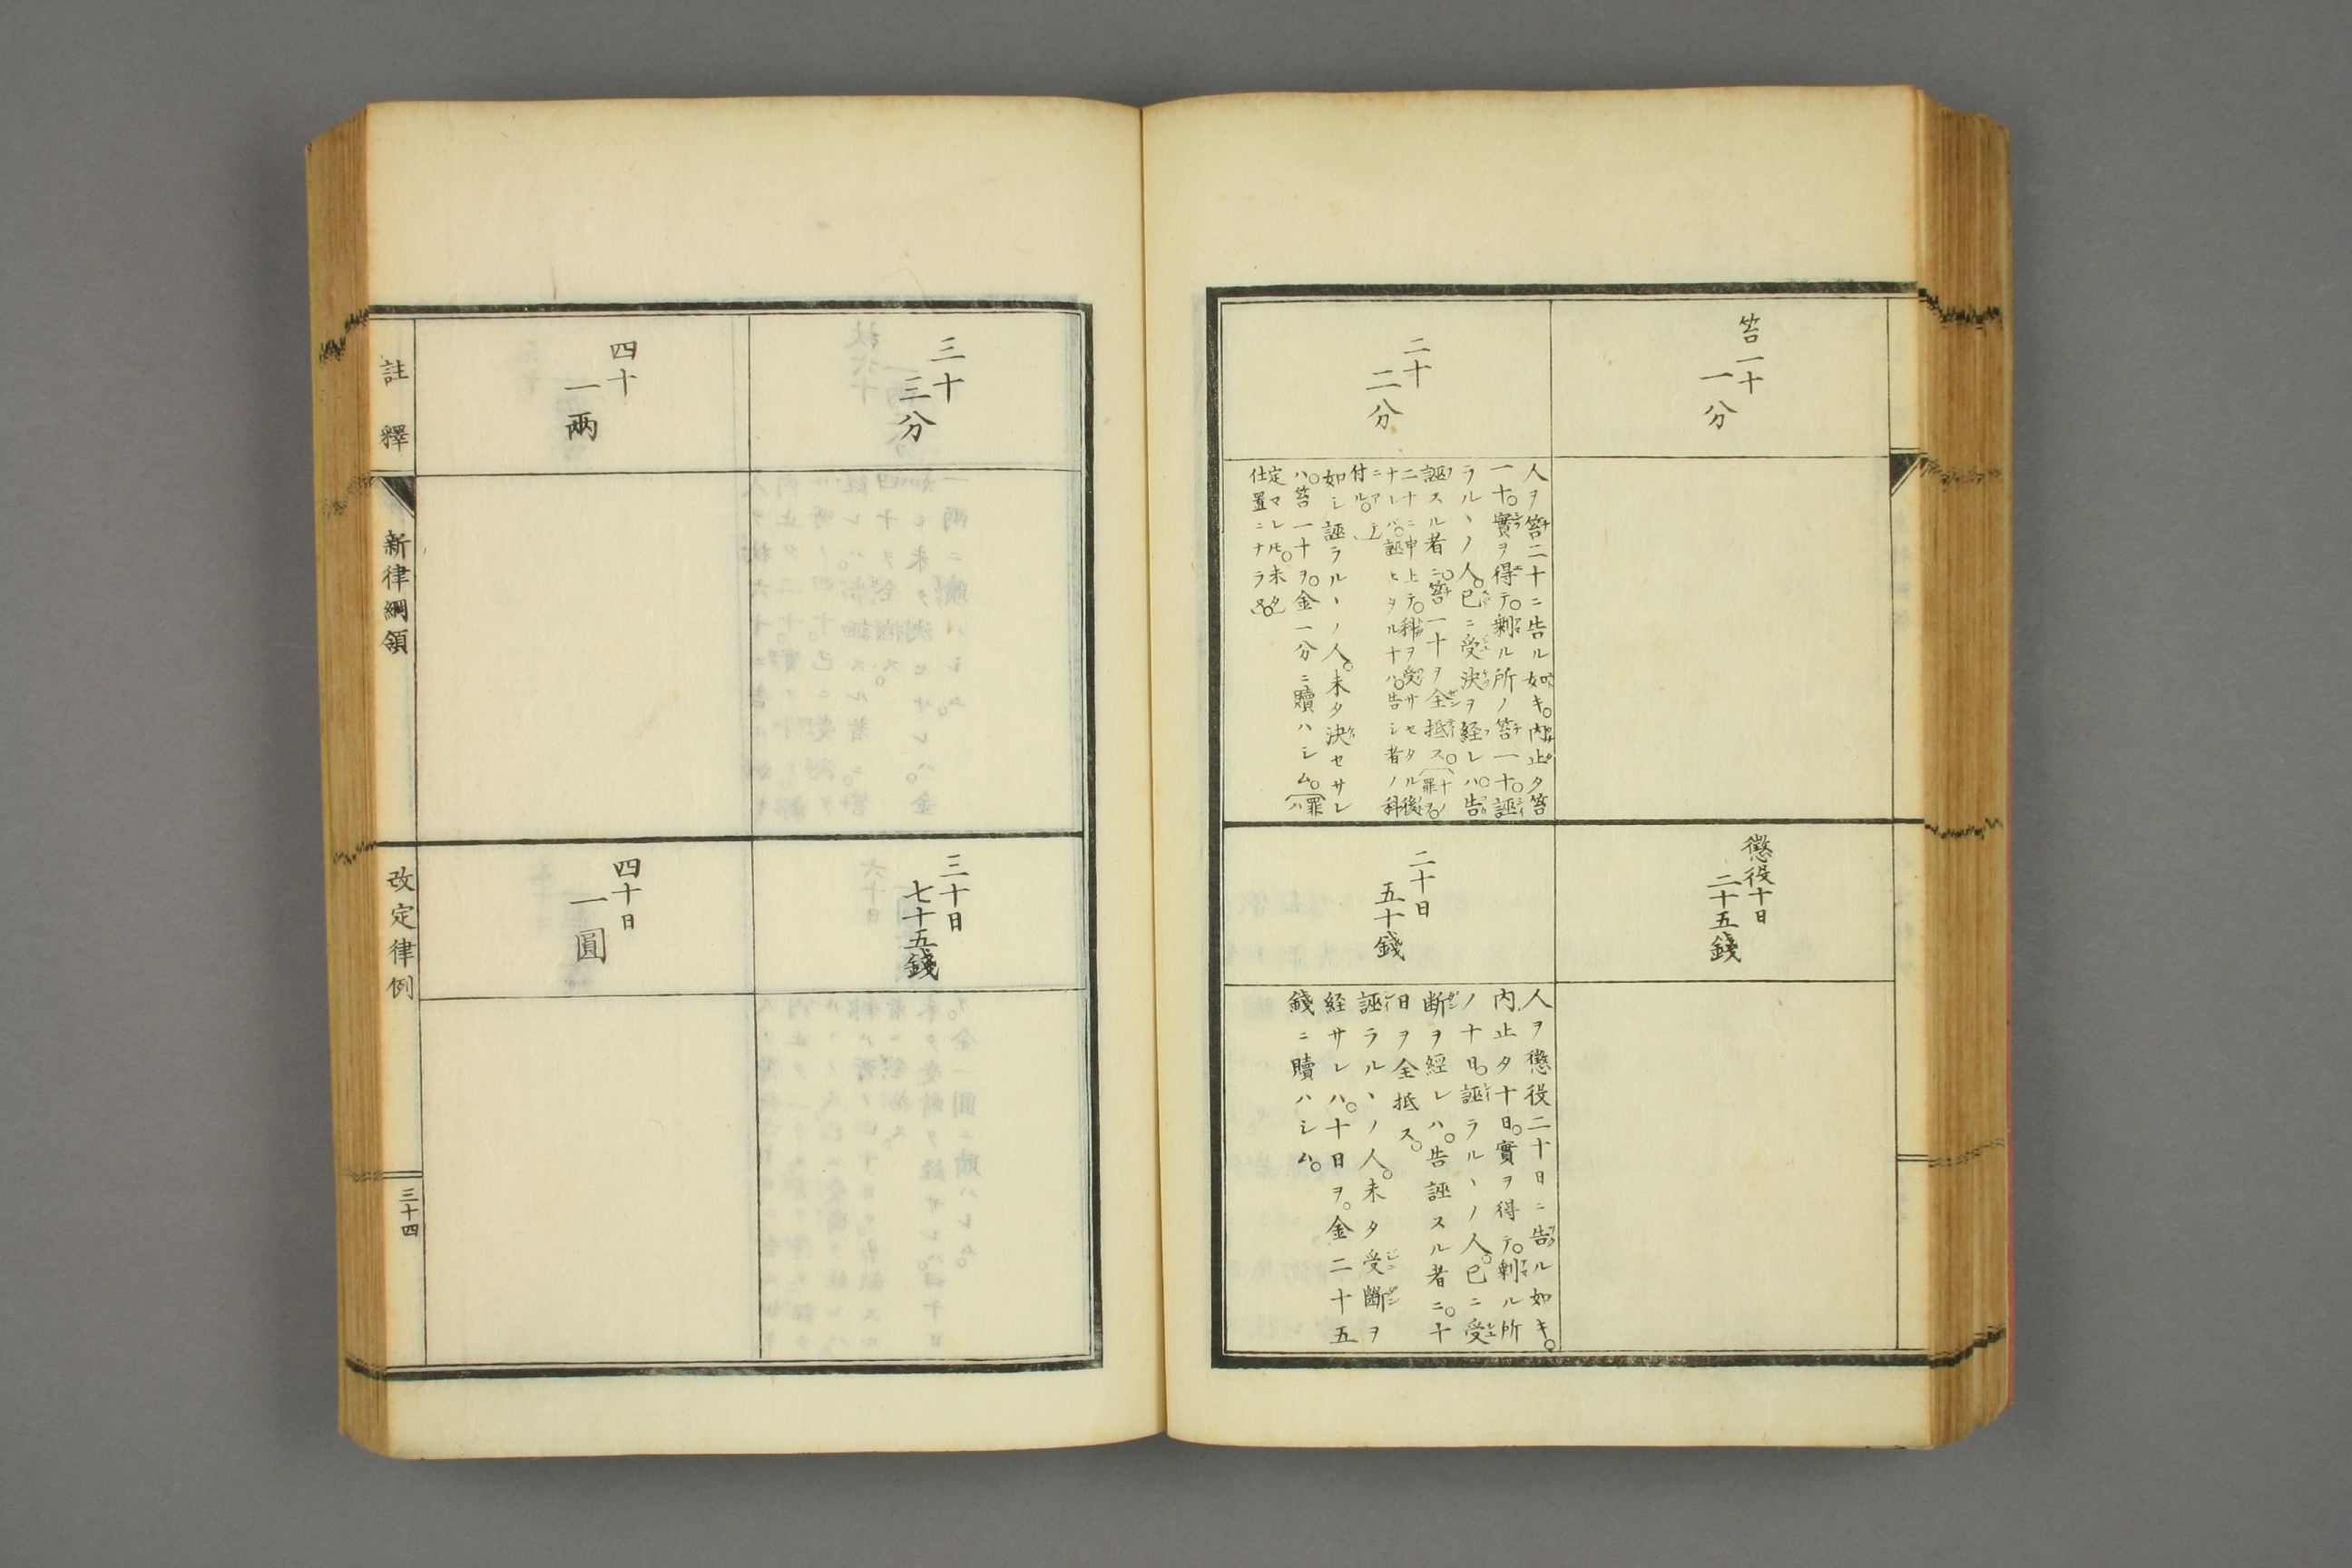 笞一十
一分
二十
二分
人ヲ笞二十ニ告ル如キ。内止タ笞
一十。實ヲ得テ。剩ル所ノ笞一十。誣
ラル丶ノ人。已ニ受決ヲ経レハ。告
誣スル者ニ。笞一十ヲ全抵ス。
如シ誣ラル丶ノ人。未タ決セサレ
ハ。笞一十ヲ。金一分ニ贖ハシム。
定マレ𪜈。未タ
仕置ニナラヌ。
懲役十日
二十五錢
二十日
五十錢
人ヲ懲役二十日ニ告ル如キ。
内止タ十日。實ヲ得テ。剩ル所
ノ十日。誣ラル丶ノ人。已ニ受
断ヲ經レハ。告誣スル者ニ。十
日ヲ全抵ス。
誣ラル丶ノ人。未タ受斷ヲ
経サレハ。十日ヲ。金二十五
錢ニ贖ハシム。
三十
三分
四十
一兩
三十日
七十五錢
四十日
一圓
註釋
新律綱領
改定律例
三十四